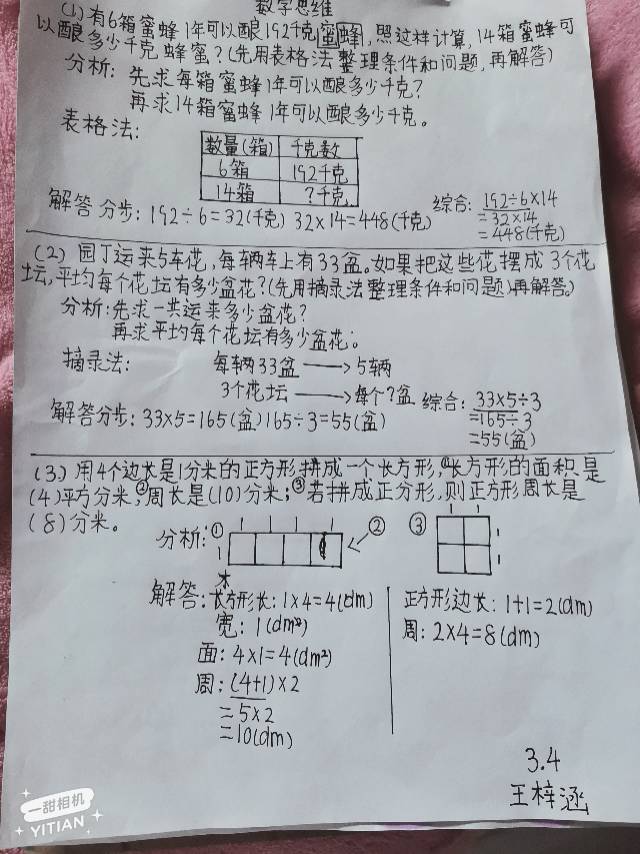 数学思维
(1)有6箱蜜蜂1年可以酿192千克蜜蜂,照这样计算,14箱蜜蜂可
以酿多少千克蜂蜜?(先用表格法整理条件和问题,再解答)
分析:先求每箱蜜蜂1年可以酿多少千克?
再求14箱蜜蜂1年可以酿多少千克。
表格法:
数量(箱) 千克数
6箱 192千克
14箱 ?千克
解答 分步:192÷6=32(千克) 32×14=448(千克) 综合:192÷6×14
=32×14
=448(千克)
(2)园丁运来5车花,每辆车上有33盆。如果把这些花摆成3个花
坛,平均每个花坛有多少盆花?(先用摘录法整理条件和问题)再解答。
分析:先求一共运来多少盆花?
再求平均每个花坛有多少盆花。
摘录法: 每辆33盆 → 5辆
3个花坛 → 每个?盆
解答分步:33×5=165(盆) 165÷3=55(盆) 综合:33×5÷3
=165÷3
=55(盆)
(3)用4个边长是1分米的正方形拼成一个长方形,①长方形的面积是
(4)平方分米,②周长是(10)分米;③若拼成正分形,则正方形周长是
(8)分米。
分析:① ② ③
解答:长方形长:1×4=4(dm)
宽:1(dm²)
面:4×1=4(dm²)
周:(4+1)×2
=5×2
=10(dm)
正方形边长:1+1=2(dm)
周:2×4=8(dm)
3.4
王梓涵
一甜相机
YITIAN